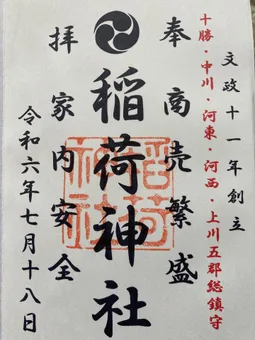 文政十一年創立
十勝・中川・河東・河西・上川五郡総鎮守
奉
商売繁盛
稲荷神社
稲荷神社
拝
家内安全
令和六年七月十八日